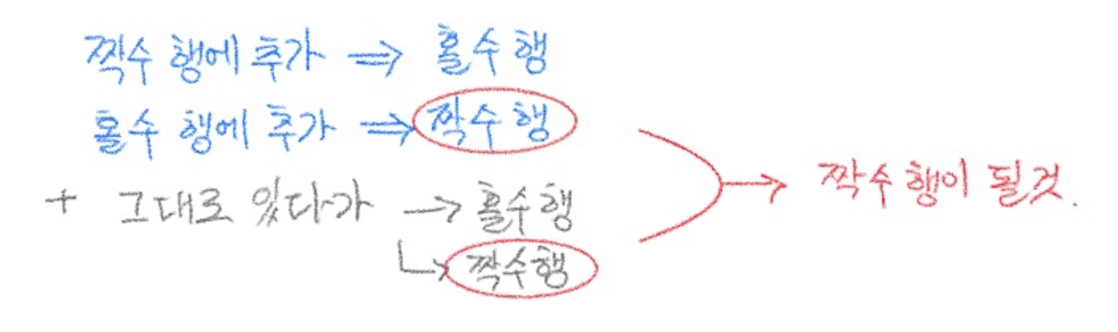 짝수 행에 추가 ⇒ 홀수 행
홀수 행에 추가 ⇒ 짝수 행
+ 그대로 있다가 → 홀수행
↳ 짝수행
→ 짝수행이 될것.